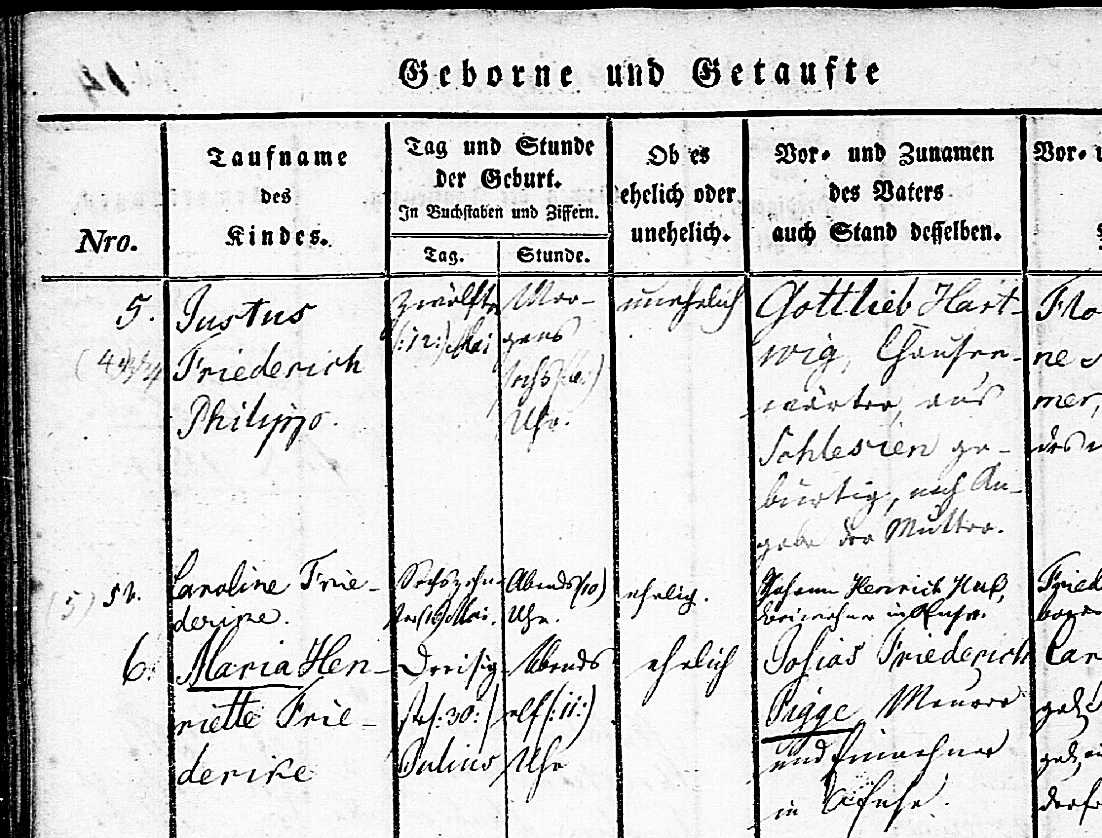 Geborne und Getaufte
Nro.
Taufname
des
Kindes.
Tag und Stunde
der Geburt.
In Buchstaben und Ziffern.
Tag.
Stunde.
Ob es
ehelich oder
unehelich.
Vor- und Zunamen
des Vaters
auch Stand desselben.
Vor- u
5.
Justus
Friederich
Philipp.
zwölften
(:12:) Mai
Mor-
gens
sechs (:6:)
Uhr.
unehelich
Gottlieb Hart-
wig, Chausseé-
wärter, aus
Schlesien ge-
bürtig, nach An-
gabe der Mutter.
Flo
ne
mer,
des
(5) 5b.
Caroline Frie-
derike.
Sechszehn-
ten (16) Mai.
Abends (10)
Uhr.
ehelich.
Johann Henrich
Einwohner in
Fried
6.
Maria Hen-
riette Frie-
derike
Dreisig-
ste (:30:)
Julius
Abends
elf (:11:)
Uhr
ehelich
Josias Friederich
Pigge, Maurer
und Einwohner
in
Car